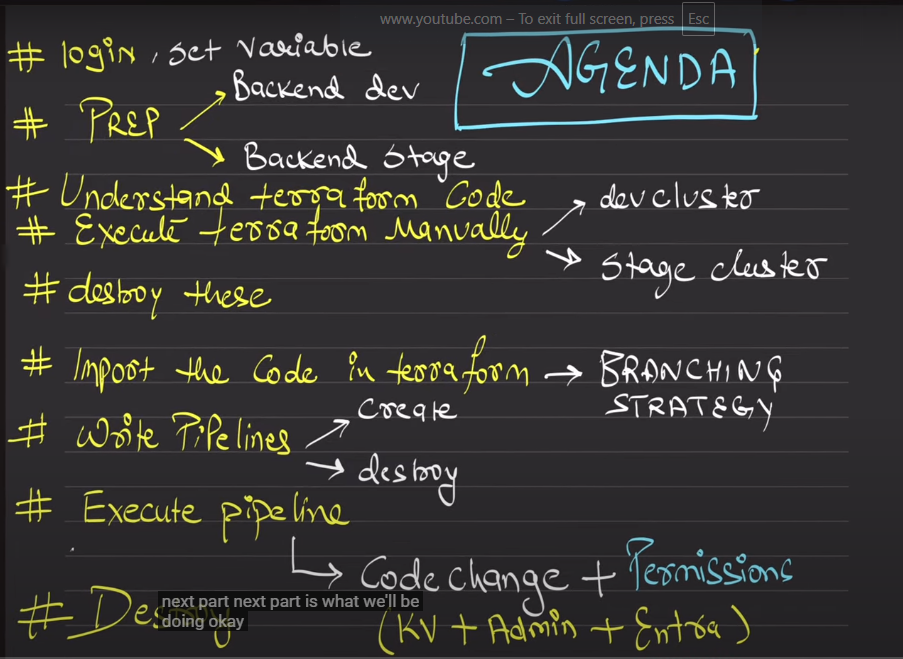 www.youtube.com – To exit full screen, press Esc
# login, set variable
AGENDA
# PREP
Backend dev
Backend Stage
# Understand terraform Code
# Execute terraform Manually
dev cluster
Stage cluster
# destroy these
# Import the Code in terraform → BRANCHING
STRATEGY
# Write Pipelines
Create
destroy
# Execute pipeline
Code change + Permissions
# Destroy
(KV + Admin + Entra)
next part next part is what we'll be
doing okay